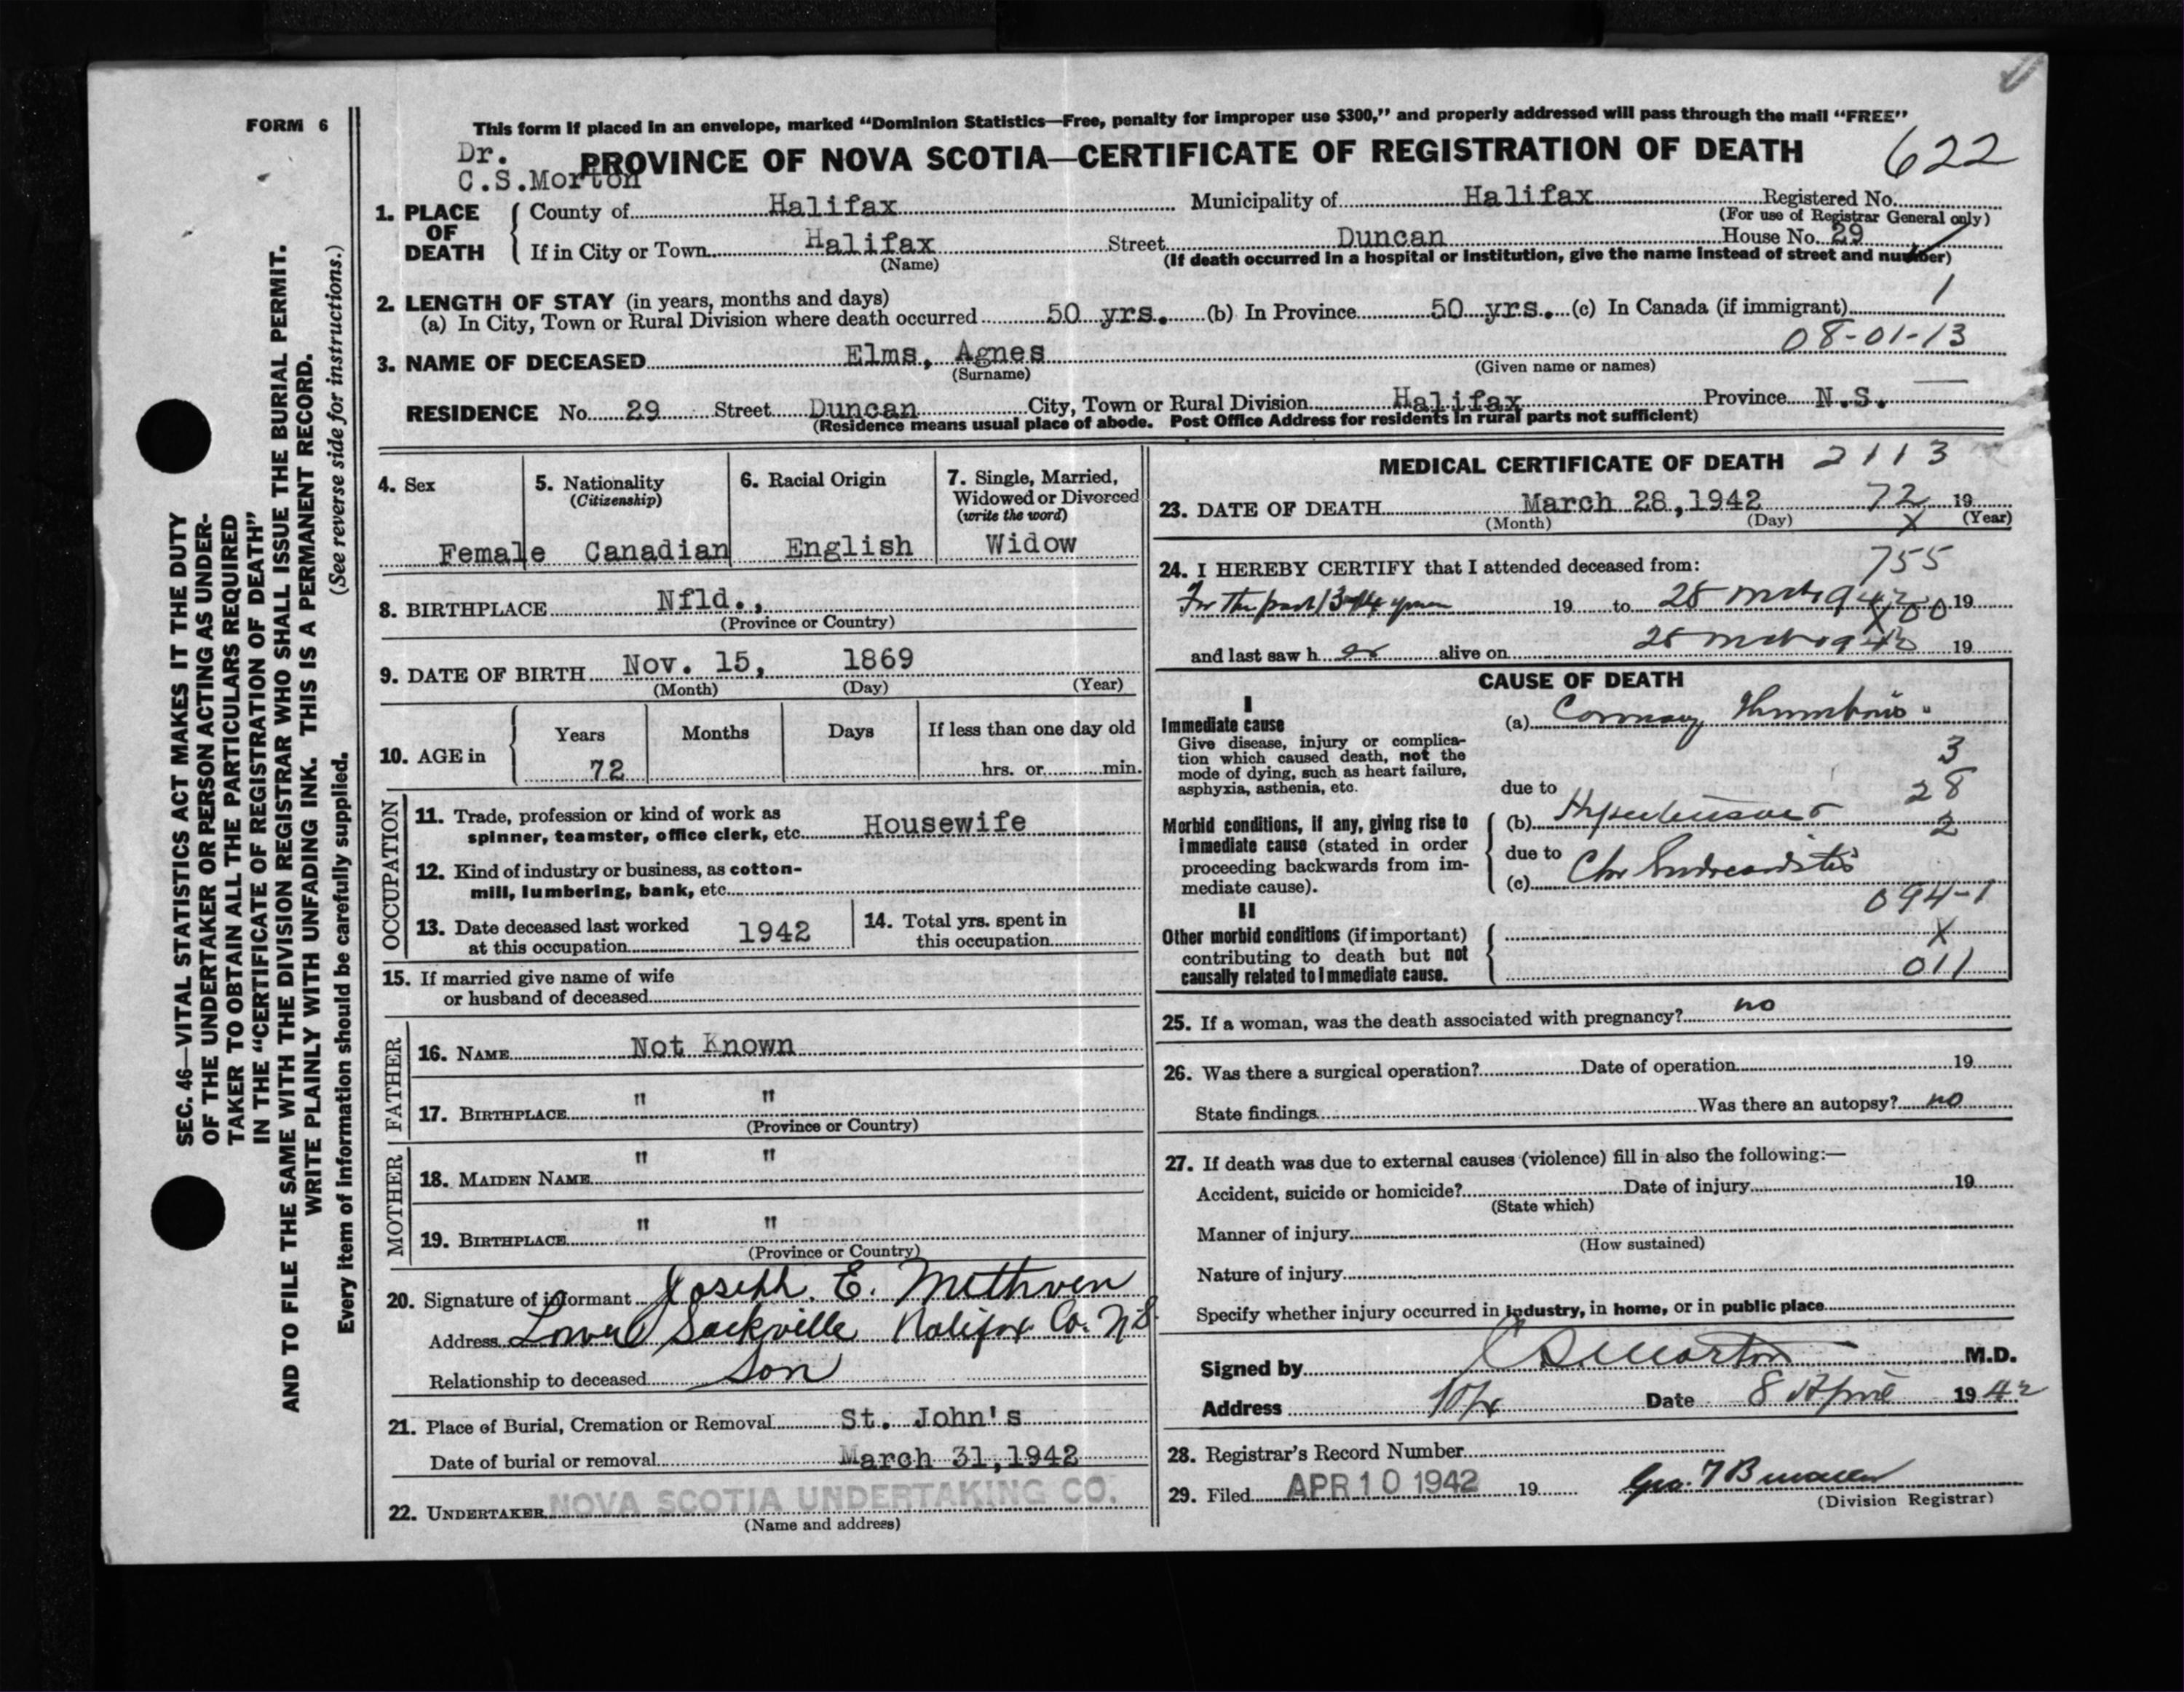 FORM 6
This form if placed in an envelope, marked “Dominion Statistics—Free, penalty for improper use $300,” and properly addressed will pass through the mail “FREE”
Dr.
C.S.Morton
PROVINCE OF NOVA SCOTIA—CERTIFICATE OF REGISTRATION OF DEATH 622
1. PLACE OF DEATH County of Halifax Municipality of Halifax Registered No.
(For use of Registrar General only)
If in City or Town Halifax Street Duncan House No. 29
(Name) (If death occurred in a hospital or institution, give the name instead of street and number)
2. LENGTH OF STAY (in years, months and days)
(a) In City, Town or Rural Division where death occurred 50 yrs. (b) In Province 50 yrs. (c) In Canada (if immigrant) 1
08-01-13
3. NAME OF DECEASED Elms, Agnes
(Surname) (Given name or names)
RESIDENCE No. 29 Street Duncan City, Town or Rural Division Halifax Province N.S.
(Residence means usual place of abode. Post Office Address for residents in rural parts not sufficient)
4. Sex
Female
5. Nationality
(Citizenship)
Canadian
6. Racial Origin
English
7. Single, Married,
Widowed or Divorced
(write the word)
Widow
8. BIRTHPLACE Nfld.,
(Province or Country)
9. DATE OF BIRTH Nov. 15, 1869
(Month) (Day) (Year)
10. AGE in
Years Months Days If less than one day old
72 hrs. or min.
OCCUPATION
11. Trade, profession or kind of work as
spinner, teamster, office clerk, etc. Housewife
12. Kind of industry or business, as cotton-
mill, lumbering, bank, etc.
13. Date deceased last worked
at this occupation 1942
14. Total yrs. spent in
this occupation
15. If married give name of wife
or husband of deceased
FATHER
16. NAME Not Known
17. BIRTHPLACE " "
(Province or Country)
MOTHER
18. MAIDEN NAME " "
19. BIRTHPLACE " "
(Province or Country)
20. Signature of informant Joseph. E. Methven
Address Lower Sackville Halifax Co. N.S.
Relationship to deceased Son
21. Place of Burial, Cremation or Removal St. John's
Date of burial or removal March 31,1942
22. UNDERTAKER NOVA SCOTIA UNDERTAKING CO.
(Name and address)
MEDICAL CERTIFICATE OF DEATH 2113
23. DATE OF DEATH March 28,1942 72 19
(Month) (Day) X (Year)
24. I HEREBY CERTIFY that I attended deceased from: 755
For the past 13-14 years 19 to 28 Mch 1942 X00 19
and last saw h er alive on 28 Mch 1942 19
CAUSE OF DEATH
I
Immediate cause
Give disease, injury or complica-
tion which caused death, not the
mode of dying, such as heart failure,
asphyxia, asthenia, etc.
(a) Coronary Thrombosis
3
due to 28
Morbid conditions, if any, giving rise to
immediate cause (stated in order
proceeding backwards from im-
mediate cause).
(b) Hypertension 2
due to
(c) Chr Endocarditis
094-1
II
Other morbid conditions (if important)
contributing to death but not
causally related to immediate cause.
X
011
25. If a woman, was the death associated with pregnancy? no
26. Was there a surgical operation? Date of operation 19
State findings Was there an autopsy? no
27. If death was due to external causes (violence) fill in also the following:—
Accident, suicide or homicide? Date of injury 19
(State which)
Manner of injury
(How sustained)
Nature of injury
Specify whether injury occurred in industry, in home, or in public place
Signed by C S Morton M.D.
Address Hfx Date 8 April 1942
28. Registrar's Record Number
29. Filed APR 10 1942 19 Geo. F B
(Division Registrar)
SEC. 46—VITAL STATISTICS ACT MAKES IT THE DUTY
OF THE UNDERTAKER OR PERSON ACTING AS UNDER-
TAKER TO OBTAIN ALL THE PARTICULARS REQUIRED
IN THE “CERTIFICATE OF REGISTRATION OF DEATH”
AND TO FILE THE SAME WITH THE DIVISION REGISTRAR WHO SHALL ISSUE THE BURIAL PERMIT.
WRITE PLAINLY WITH UNFADING INK. THIS IS A PERMANENT RECORD.
Every item of information should be carefully supplied. (See reverse side for instructions.)